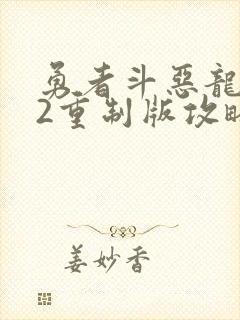 勇者斗惡龍
2重制版攻略
姜妙香